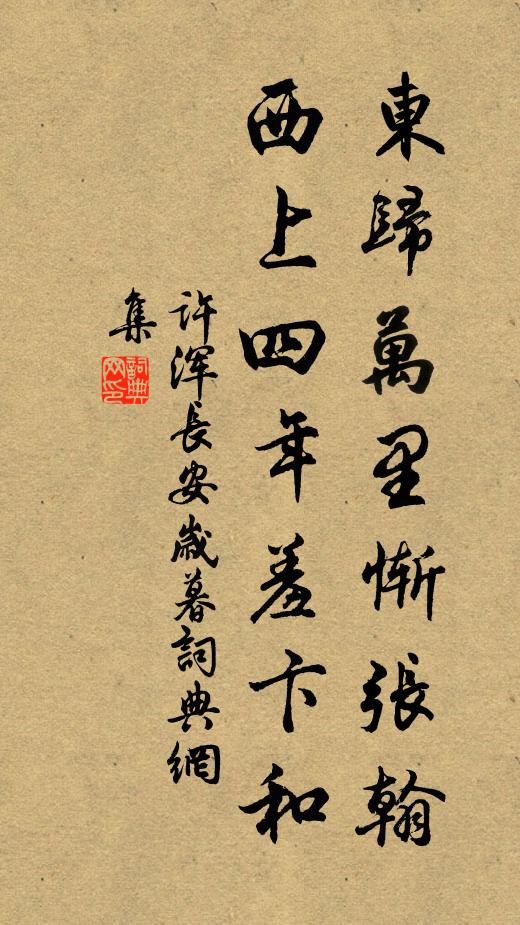 東歸萬里慚張翰
西上四年羞卞和
许浑長安歲暮詞典網
集
詞典网印